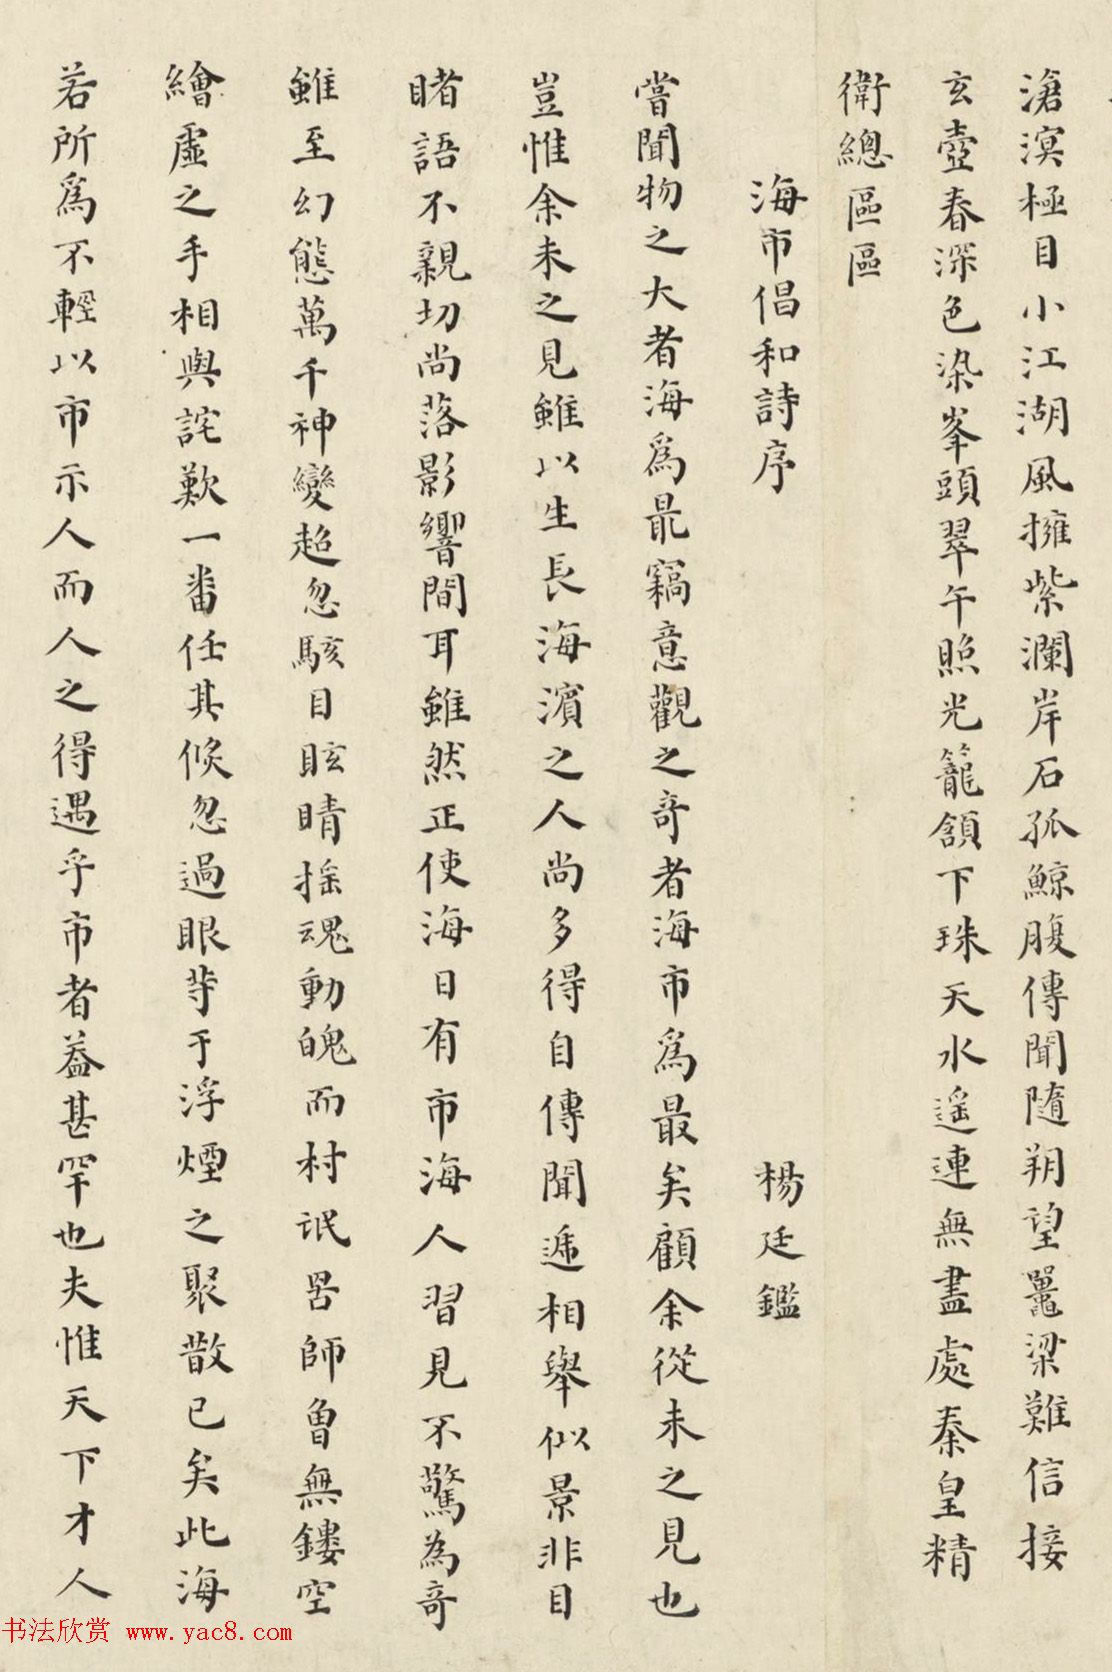 滄溟極目小江湖風擁紫瀾岸石孤鯨腹傳聞隨朔望鼉梁難信接
玄壺春深色染峯頭翠午照光籠頷下珠天水遥連無盡處秦皇精
衛總區區
海市倡和詩序 楊廷鑑
嘗聞物之大者海為最竊意觀之奇者海市為最矣顧余從未之見也
豈惟余未之見雖以生長海濱之人尚多得自傳聞遞相舉似景非目
睹語不親切尚落影響間耳雖然正使海日有市海人習見不驚為奇
雖至幻態萬千神變超忽駭目眩睛摇魂動魄而村氓罟師曾無鏤空
繪虛之手相與詫歎一番任其倏忽過眼等于浮煙之聚散已矣此海
若所為不輕以市示人而人之得遇乎市者蓋甚罕也夫惟天下才人
书法欣赏 www.yac8.com